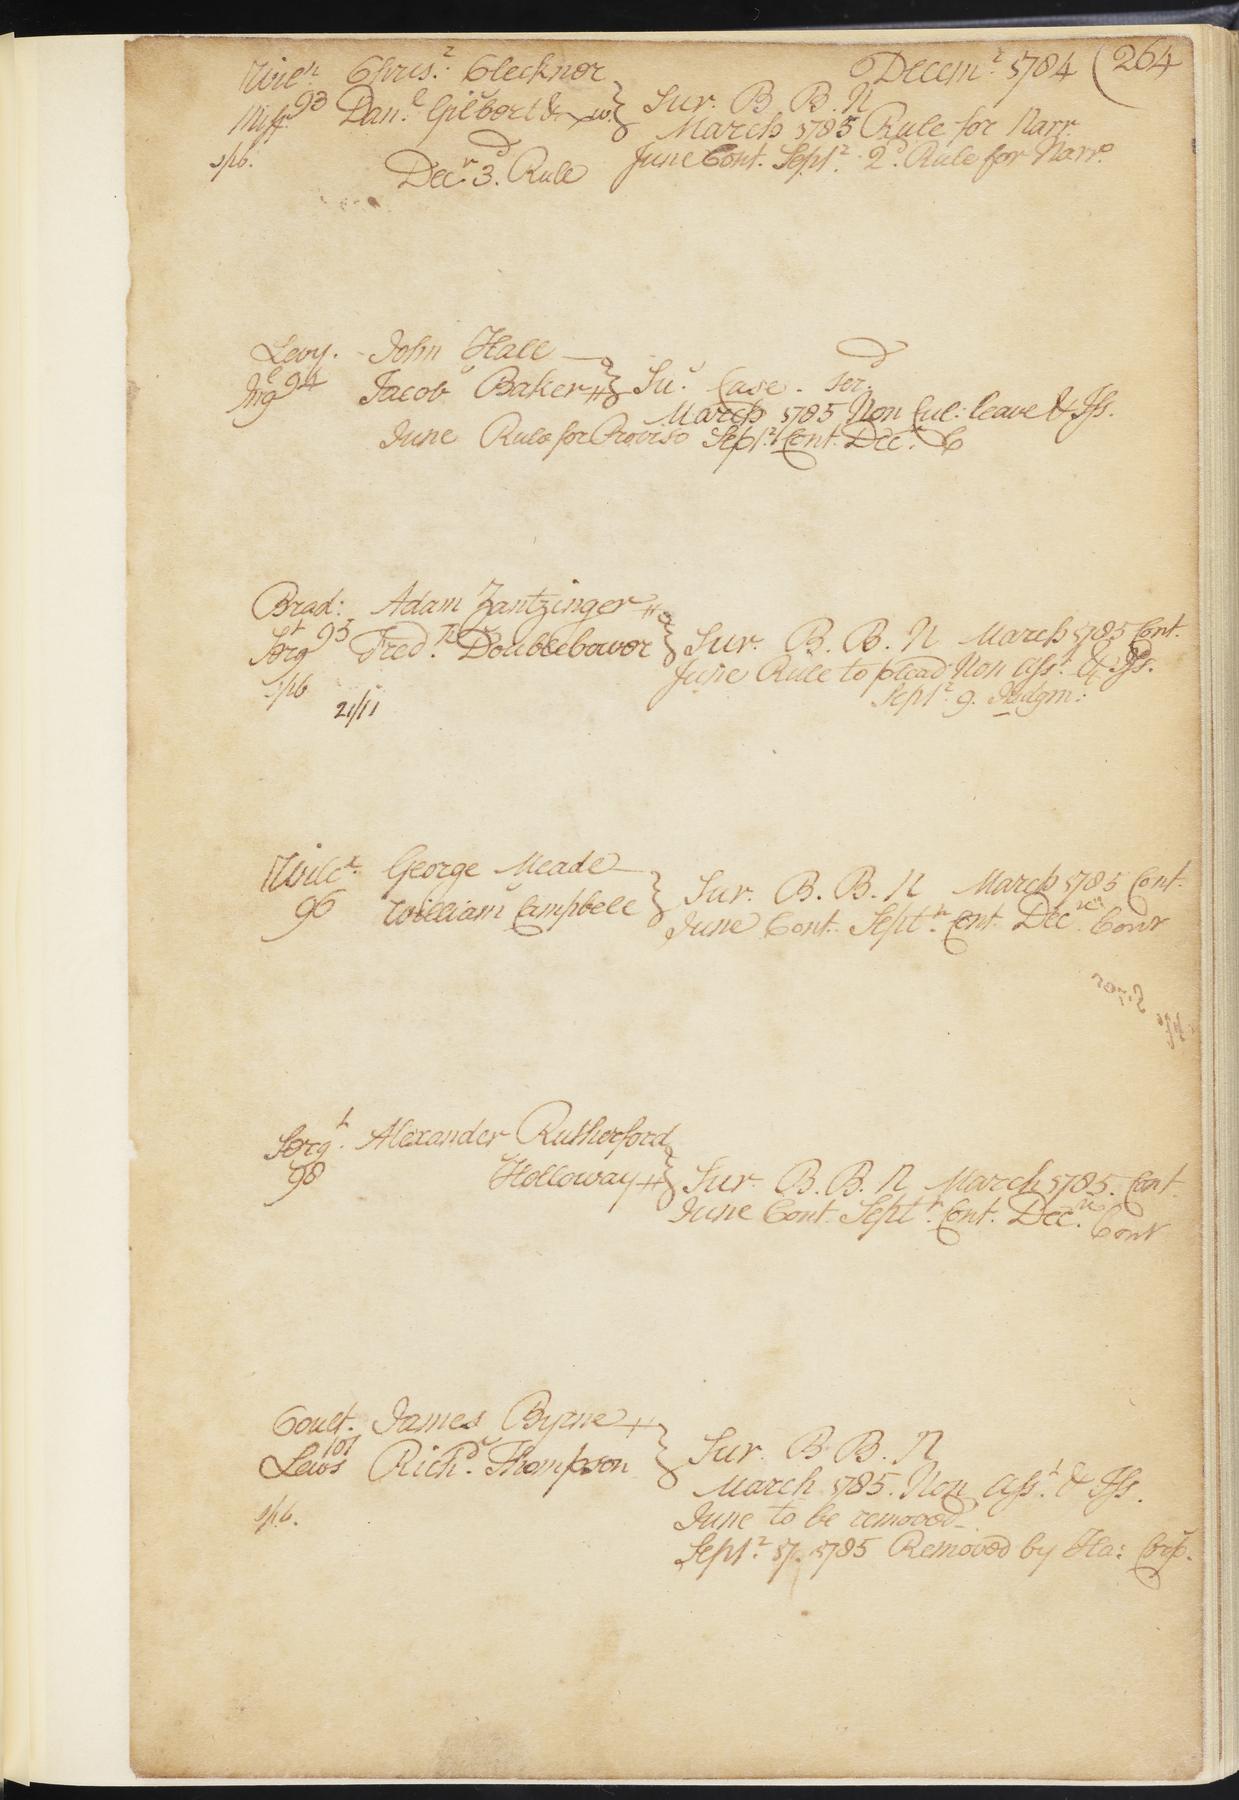 Decem.r 1784 (264
Wilc.x Chris.r Clecknor
Miff. 93 Dan.l Gilbert & ux } Sur. B. B. N
March 1785 Rule for Narr.
spb. June Cont. Sept.r 2.d Rule for Narr.
Dec.r 3.d Rule
Levy. John Hall
Ing.l 94 Jacob Baker } Su.r Case. ser.d
March 1785 Non Cul: leave & Iss.
June Rule for Proviso Sept.r Cont. Dec.r C
Brad: Adam Zantzinger
Serg.t 95 Fred.k Doublebower } Sur. B. B. N March 1785 Cont.
spb June Rule to plead Non Ass.t & Iss.
21/11 Sept.r 9. Judgm.t
Wilc.x George Meade
96 William Campbell } Sur. B. B. N March 1785 Cont.
June Cont. Sept.r Cont. Dec.r Cont
Serg.t Alexander Rutherford
98 Holloway } Sur. B. B. N March 1785. Cont.
June Cont. Sept.r Cont. Dec.r Cont
Coult. James Byrne
101
Lewis Rich.d Thompson } Sur. B. B. N
March 1785. Non Ass.t & Iss.
spb. June to be removed
Sept.r 17. 1785 Removed by Ha: Corp.